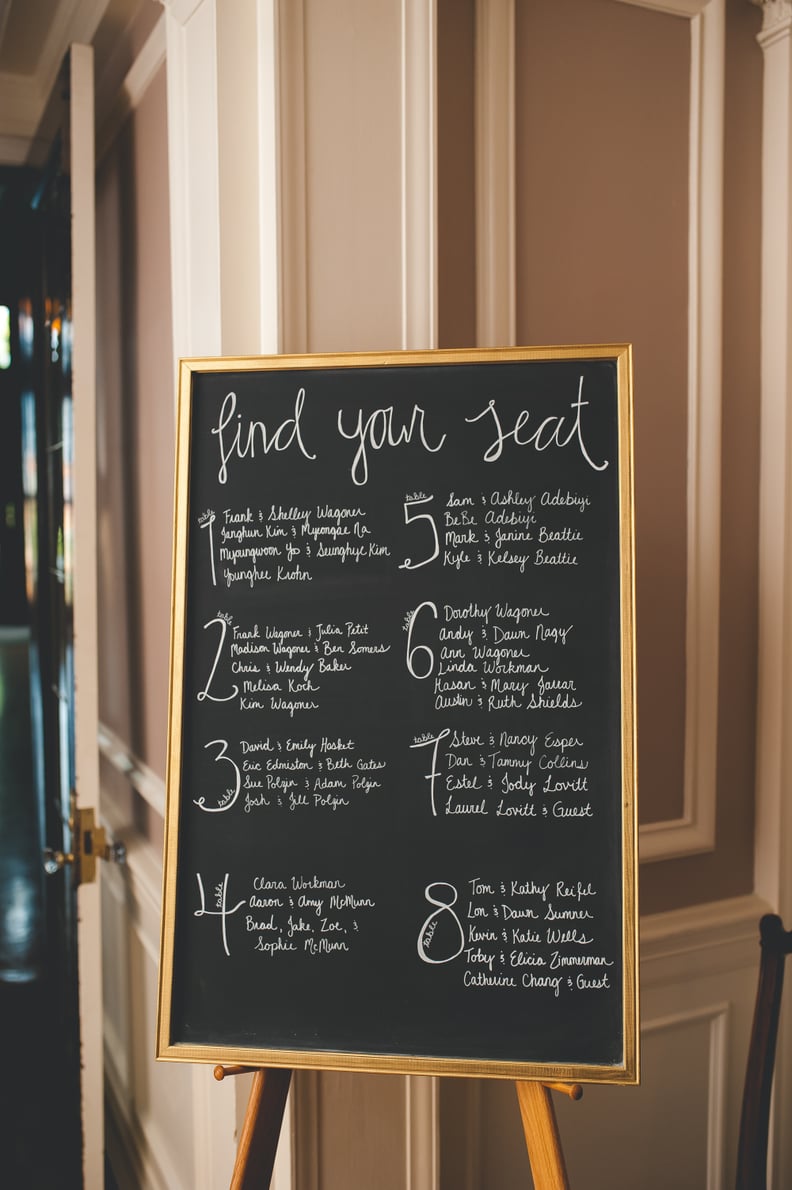 find your seat
table 1
Frank & Shelley Wagoner
Janghun Kim & Myeongae Na
Myoungwoon Yo & Seunghye Kim
Younghee Krohn
table 2
Frank Wagoner & Julia Petit
Madison Wagoner & Ben Somers
Chris & Wendy Baker
Melisa Koch
Kim Wagoner
table 3
David & Emily Hasket
Eric Edmiston & Beth Gates
Sue Polzin & Adam Polzin
Josh & Jill Polzin
table 4
Clara Workman
Aaron & Amy McMunn
Brad, Jake, Zoe, &
Sophie McMunn
table 5
Sam & Ashley Adebiyi
BeBe Adebiyi
Mark & Janine Beattie
Kyle & Kelsey Beattie
table 6
Dorothy Wagoner
Andy & Dawn Nagy
Ann Wagoner
Linda Workman
Hasan & Mary
Austin & Ruth Shields
table 7
Steve & Nancy Esper
Dan & Tammy Collins
Estel & Jody Lovitt
Laurel Lovitt & Guest
table 8
Tom & Kathy Reifel
Lon & Dawn Sumner
Kevin & Katie Wells
Toby & Elicia Zimmerman
Catherine Chang & Guest